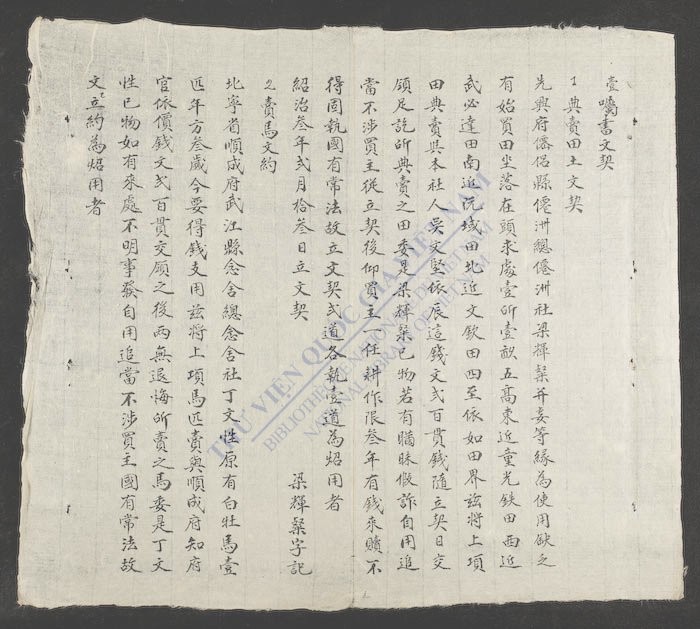 壹嚼書文契
1典賣田土文契
先興府僊侶縣僊洲總僊洲社梁輝粲并妾等緣為使用缺乏
有始買田坐落在頭求處壹所壹畝五高東近童光鉄田西近
武必達田南近阮域田北近文欽田四至依如田界茲將上項
田典賣與本社人吳文堅依辰這錢文弍百貫錢隨立契日交
領足訖所典賣之田委是梁輝粲已物若有瞒昧假詐自用追
當不涉買主從立契後仰買主一任耕作限叁年有錢來贖不
得固執國有常法故立文契弍道各執壹道為炤用者
紹治叁年弍月拾叁日立文契
梁輝粲字記
2賣馬文約
北寧省順成府武江縣念舍總念舍社丁文性原有白牡馬壹
匹年方叁歲今要得錢支用茲將上項馬匹賣與順成府知府
官依價錢文弍百貫交願之後两無退悔所賣之馬委是丁文
性已物如有來處不明事發自用追當不涉買主國有常法故
文立約為炤用者
THƯ VIỆN QUỐC GIA VIỆT NAM
BIBLIOTHÈQUE NATIONALE DU VIETNAM
NATIONAL LIBRARY OF VIETNAM